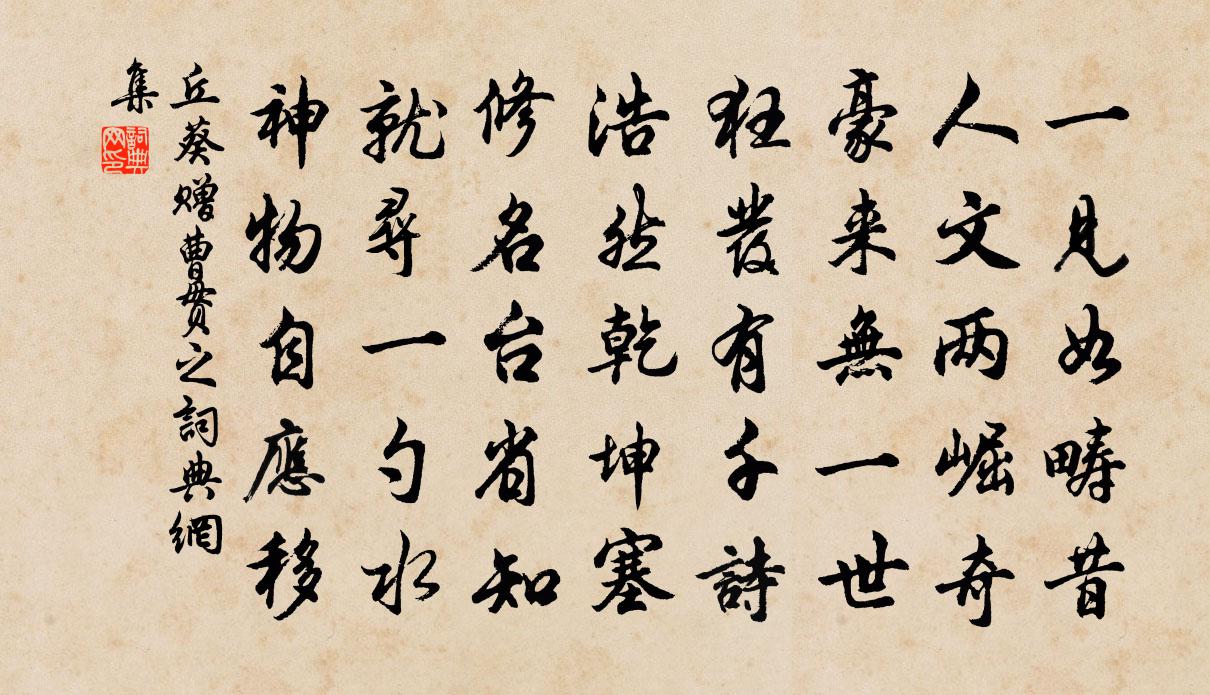 一見如疇昔
人文兩崛奇
豪来無一世
狂發有千詩
浩然乾坤塞
修名台省知
就尋一勺水
神物自應移
丘葵贈曹貫之詞典網
集
詞典
网印